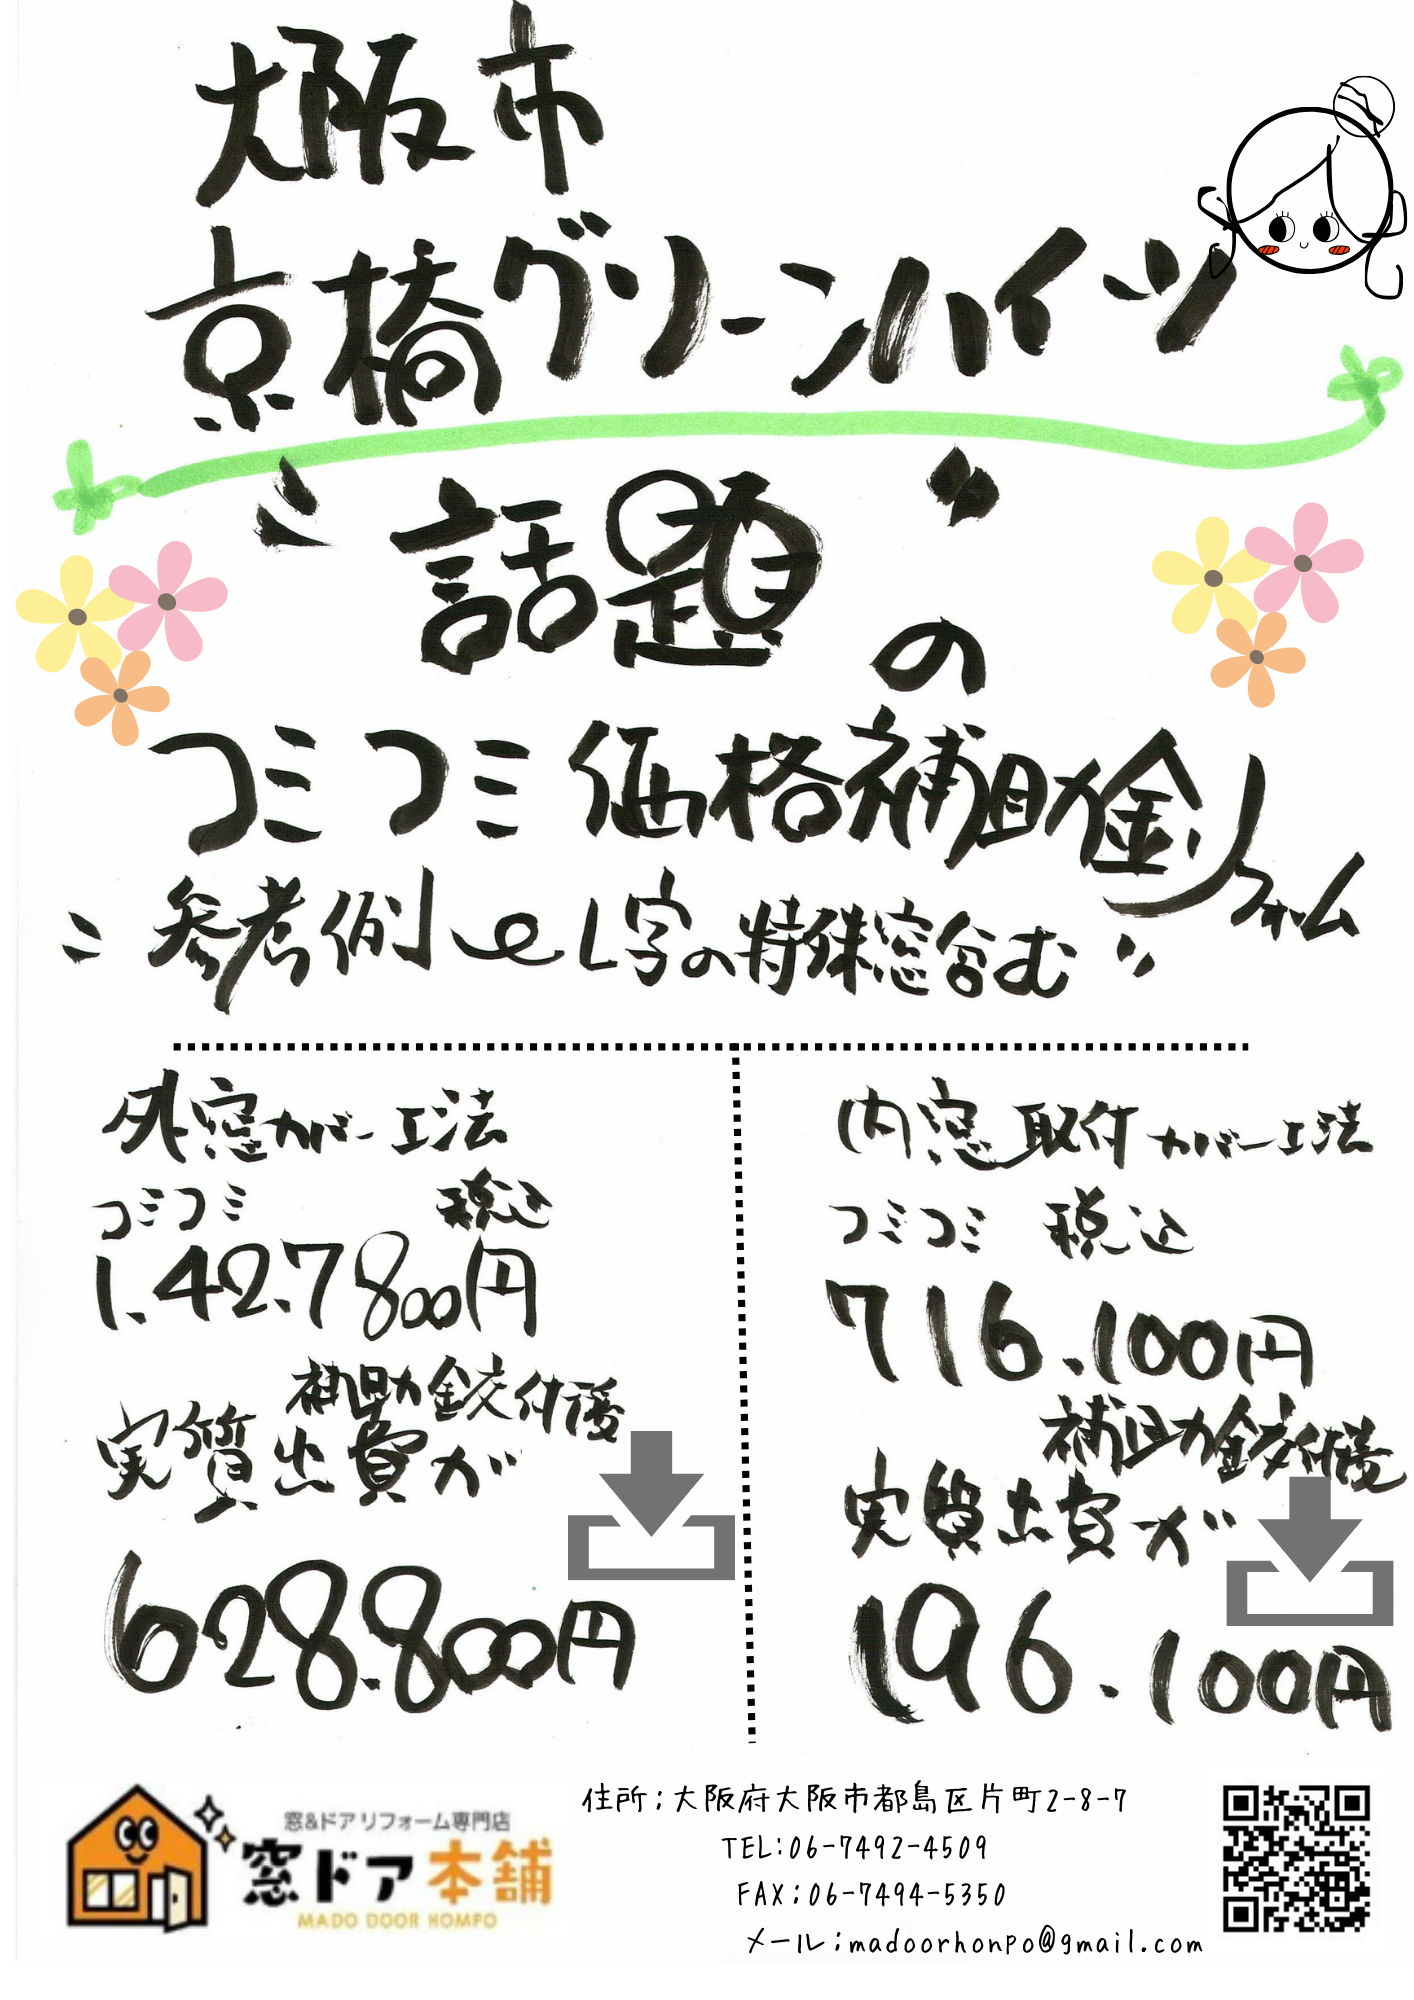 大阪市
京橋グリーンハイツ
〝話題〞の
コミコミ価格補助金リフォーム
〝参考例 L字の特殊窓含む〞
外窓カバー工法
コミコミ 税込
1.42.7800円
補助金交付後
実質出費が
628.800円
内窓取付カバー工法
コミコミ 税込
716.100円
補助金交付後
実質出費が
196.100円
窓&ドアリフォーム専門店
窓ドア本舗
MADO DOOR HOMPO
住所:大阪府大阪市都島区片町2-8-7
TEL:06-7492-4509
FAX:06-7494-5350
メール:madoorhonpo@gmail.com